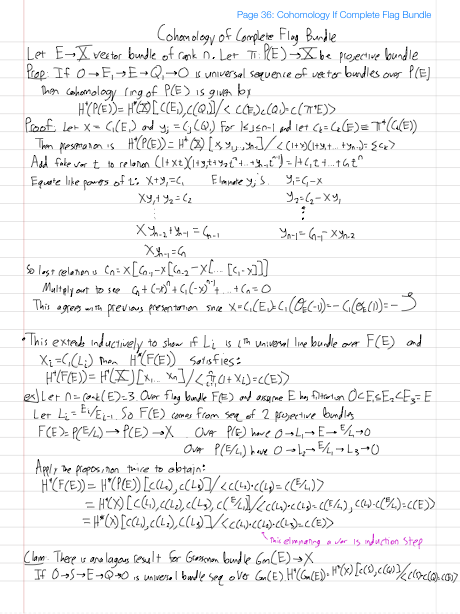 Page 36: Cohomology If Complete Flag Bundle
Cohomology of Complete Flag Bundle
Let E→X vector bundle of rank n. Let π: P(E)→X be projective bundle
Prop: If 0→E₁→E→Q₁→0 is universal sequence of vector bundles over P(E)
then cohomology ring of P(E) is given by
H*(P(E)) = H*(X)[C(E₁),C(Q₁)]/<C(E₁)C(Q₁)=C(π*E)>
Proof: Let x = C₁(E₁) and yⱼ = Cⱼ(Q₁) for 1≤j≤n-1 and let Cₖ=Cₖ(E)≡π*(Cₖ(E))
Then presentation is H*(P(E)) = H*(X)[x,y₁,...,yₙ₋₁]/<(1+x)(1+y₁+...+yₙ₋₁)=ΣCₖ>
Add fake var t to relation (1+xt)(1+y₁t+y₂t²+...+yₙ₋₁tⁿ⁻¹)=1+C₁t+...+Cₙtⁿ
Equate like powers of t: x+y₁=C₁ Eliminate yⱼ's y₁=C₁-x
xy₁+y₂=C₂ y₂=C₂-xy₁
⋮ ⋮
xyₙ₋₂+yₙ₋₁=Cₙ₋₁ yₙ₋₁=Cₙ₋₁-xyₙ₋₂
xyₙ₋₁=Cₙ
So last relation is Cₙ=x[Cₙ₋₁-x[Cₙ₋₂-x[...[C₁-x]]]
Multiply out to see Cₙ+(-x)ⁿ+C₁(-x)ⁿ⁻¹+...+Cₙ=0
This agrees with previous presentation since x=C₁(E₁)=C₁(O_E(-1))=-C₁(O_E(1))=-ζ
• This extends inductively to show if Lᵢ is ith universal line bundle over F(E) and
xᵢ=C₁(Lᵢ) then H*(F(E)) satisfies:
H*(F(E))=H*(X)[x₁...xₙ]/<∏(1+xᵢ)=C(E)>
ex) Let n=rank(E)=3. Over flag bundle F(E) and assume E has filtration 0⊂E₁⊂E₂⊂E₃=E
Let Lᵢ=Eᵢ/Eᵢ₋₁. So F(E) comes from seq of 2 projective bundles
F(E)=P(E/L₁)→P(E)→X Over P(E) have 0→L₁→E→E/L₁→0
Over P(E/L₁) have 0→L₂→E/L₁→L₃→0
Apply the proposition twice to obtain:
H*(F(E))=H*(P(E))[C(L₂),C(L₃)]/<C(L₂)·C(L₃)=C(E/L₁)>
=H*(X)[C(L₁),C(L₂),C(L₃),C(E/L₁)]/<C(L₂)·C(L₃)=C(E/L₁), C(L₁)·C(E/L₁)=C(E)>
=H*(X)[C(L₁),C(L₂),C(L₃)]/<C(L₁)·C(L₂)·C(L₃)=C(E)>
this eliminating a var is induction step
Claim: There is analagous result for Grassman bundle Gm(E)→X
If 0→S→E→Q→0 is universal bundle seq over Gm(E), H*(Gm(E))=H*(X)[C(S),C(Q)]/<C(S)·C(Q)=C(E)>